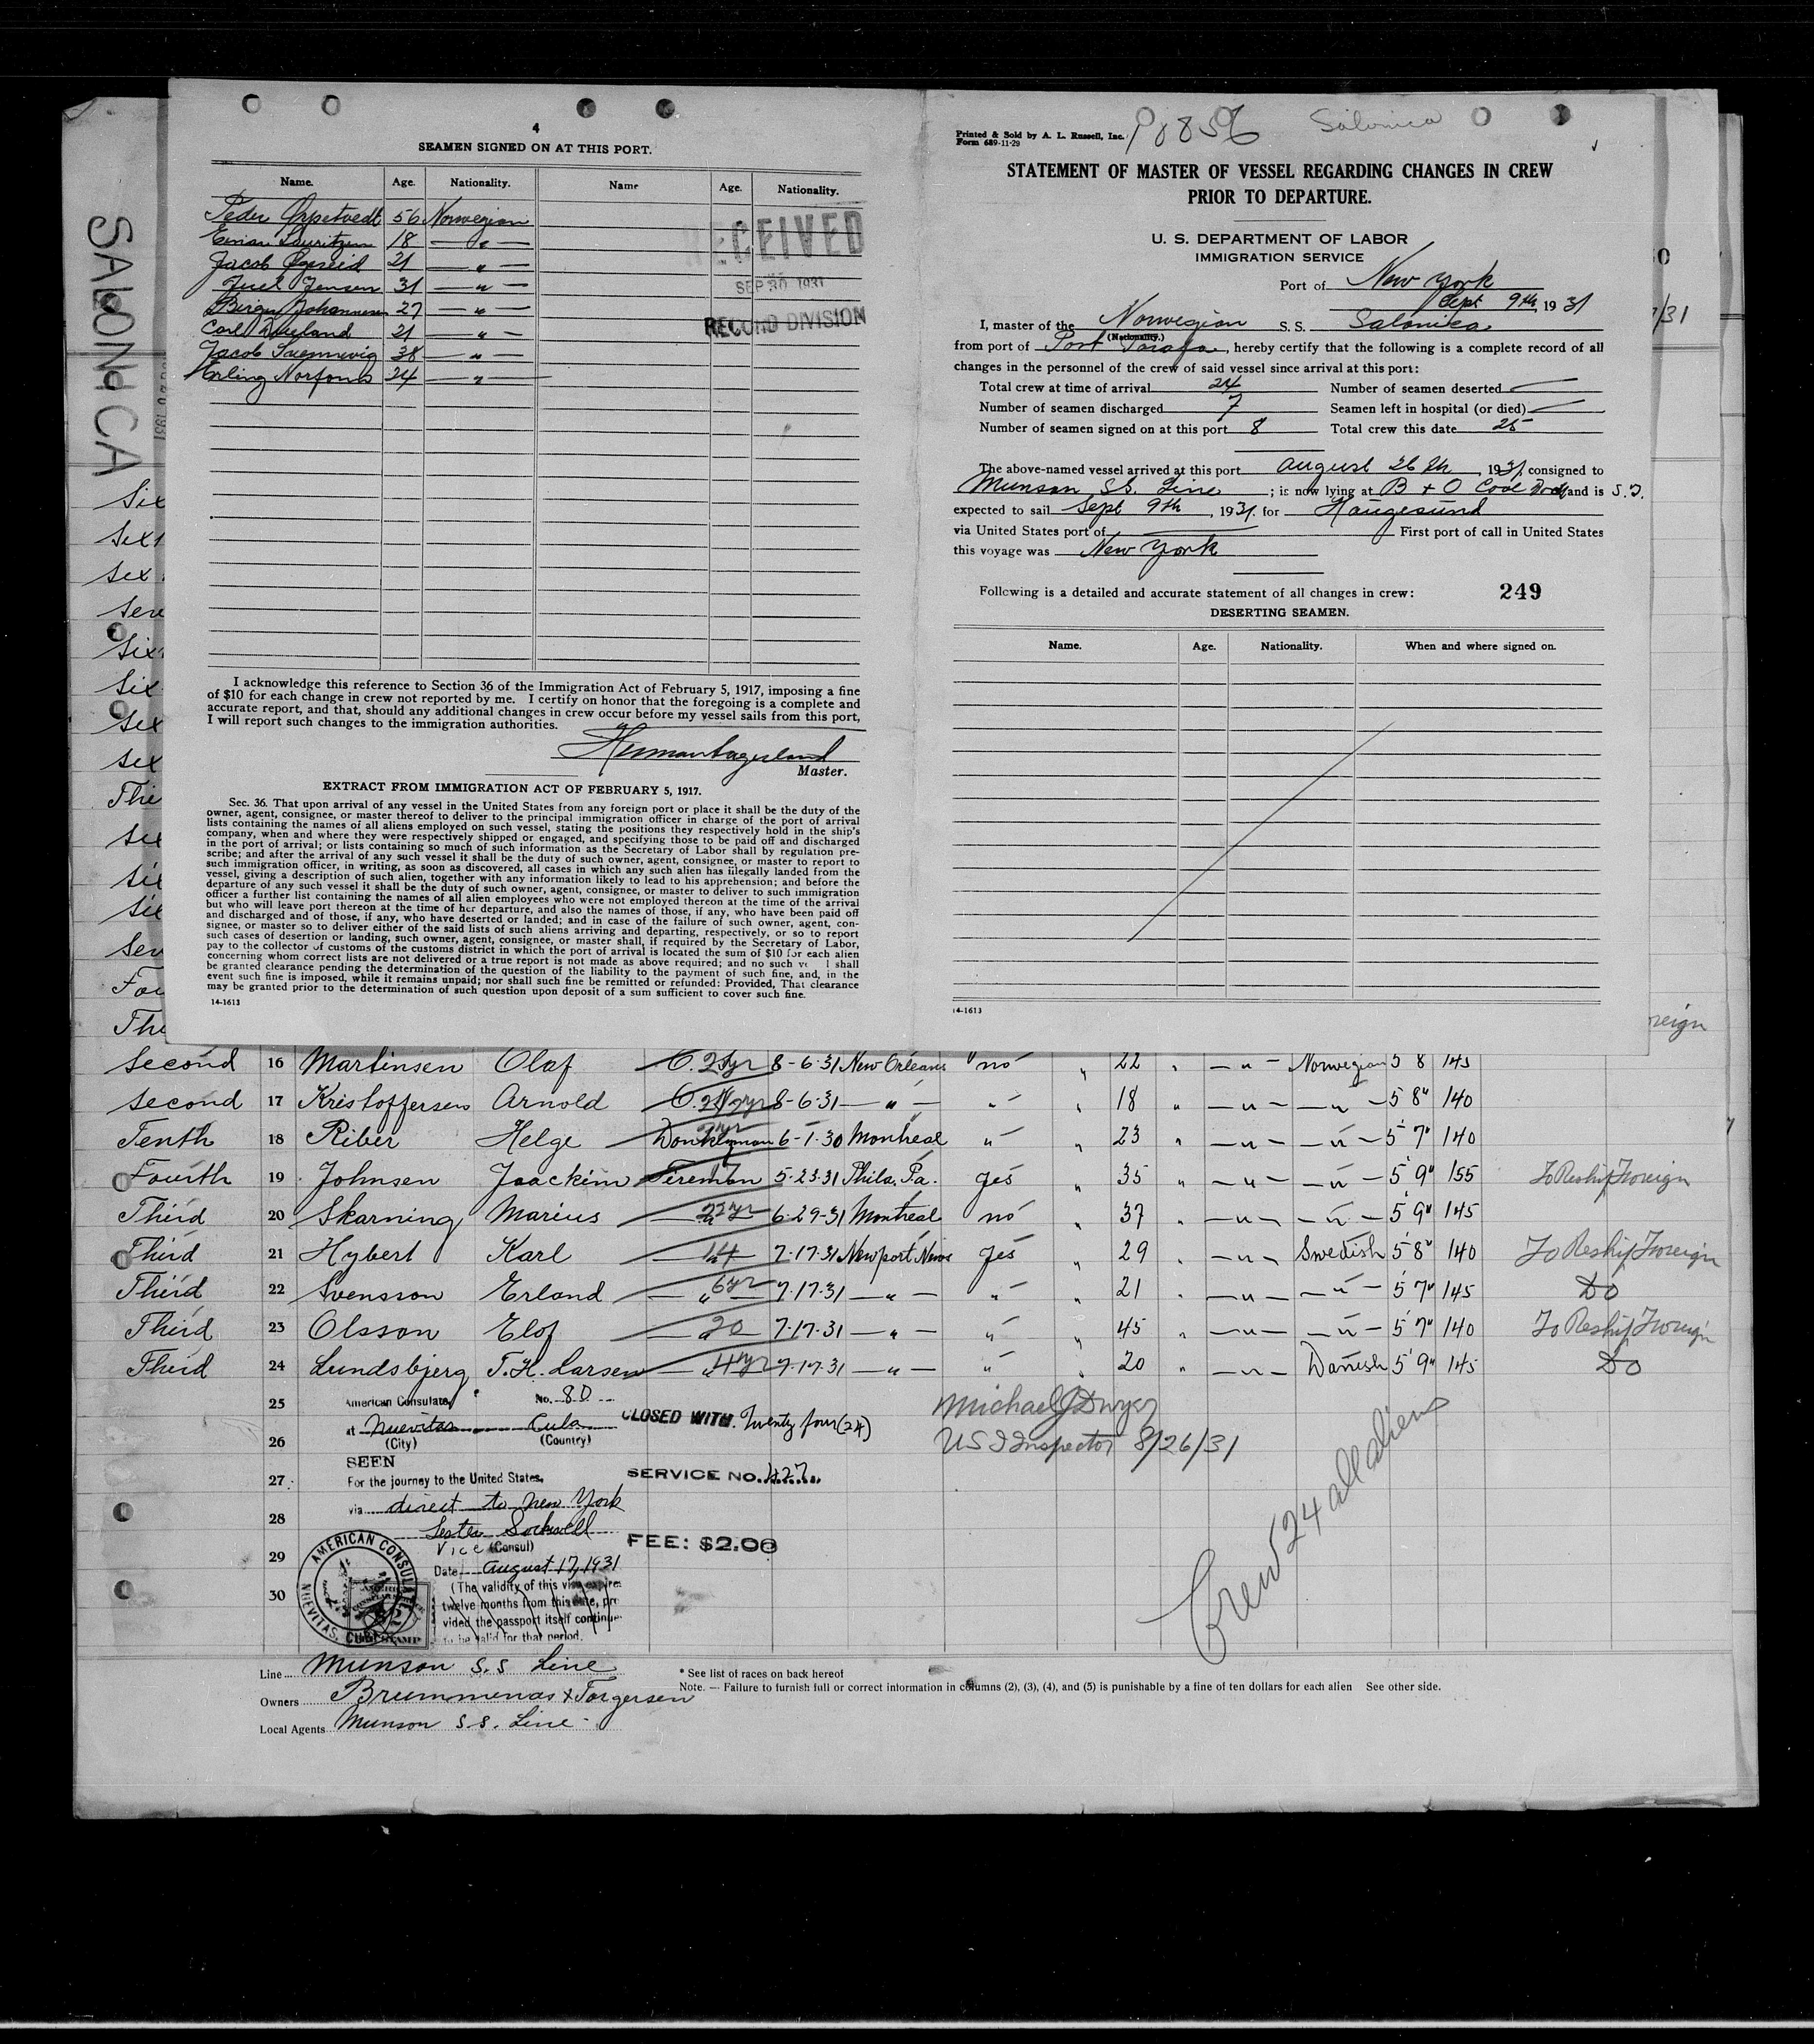 4
SEAMEN SIGNED ON AT THIS PORT.
Name. Age. Nationality. Name Age. Nationality.
Peder 56 Norwegian
Einar Lauritzen 18 — " —
Jacob 21 — " —
Juel Jensen 31 — " —
Birger Johannesen 27 — " —
Carl 21 — " —
Jacob 38 — " —
Erling 24 — " —
RECEIVED
SEP 30 1931
RECORD DIVISION
I acknowledge this reference to Section 36 of the Immigration Act of February 5, 1917, imposing a fine
of $10 for each change in crew not reported by me. I certify on honor that the foregoing is a complete and
accurate report, and that, should any additional changes in crew occur before my vessel sails from this port,
I will report such changes to the immigration authorities.
Herman
Master.
EXTRACT FROM IMMIGRATION ACT OF FEBRUARY 5, 1917.
Sec. 36. That upon arrival of any vessel in the United States from any foreign port or place it shall be the duty of the
owner, agent, consignee, or master thereof to deliver to the principal immigration officer in charge of the port of arrival
lists containing the names of all aliens employed on such vessel, stating the positions they respectively hold in the ship's
company, when and where they were respectively shipped or engaged, and specifying those to be paid off and discharged
in the port of arrival; or lists containing so much of such information as the Secretary of Labor shall by regulation pre-
scribe; and after the arrival of any such vessel it shall be the duty of such owner, agent, consignee, or master to report to
such immigration officer, in writing, as soon as discovered, all cases in which any such alien has illegally landed from the
vessel, giving a description of such alien, together with any information likely to lead to his apprehension; and before the
departure of any such vessel it shall be the duty of such owner, agent, consignee, or master to deliver to such immigration
officer a further list containing the names of all alien employees who were not employed thereon at the time of the arrival
but who will leave port thereon at the time of her departure, and also the names of those, if any, who have been paid off
and discharged and of those, if any, who have deserted or landed; and in case of the failure of such owner, agent, con-
signee, or master so to deliver either of the said lists of such aliens arriving and departing, respectively, or so to report
such cases of desertion or landing, such owner, agent, consignee, or master shall, if required by the Secretary of Labor,
pay to the collector of customs of the customs district in which the port of arrival is located the sum of $10 for each alien
concerning whom correct lists are not delivered or a true report is not made as above required; and no such ve l shall
be granted clearance pending the determination of the question of the liability to the payment of such fine, and, in the
event such fine is imposed, while it remains unpaid; nor shall such fine be remitted or refunded: Provided, That clearance
may be granted prior to the determination of such question upon deposit of a sum sufficient to cover such fine.
14-1613
Printed & Sold by A. L. Russell, Inc.
Form 689-11-29
90856
Salonica
STATEMENT OF MASTER OF VESSEL REGARDING CHANGES IN CREW
PRIOR TO DEPARTURE.
U. S. DEPARTMENT OF LABOR
IMMIGRATION SERVICE
Port of New York
Sept 9th, 1931
I, master of the Norwegian S. S. Salonica
(Nationality.)
from port of Port Tarafa, hereby certify that the following is a complete record of all
changes in the personnel of the crew of said vessel since arrival at this port:
Total crew at time of arrival 24 Number of seamen deserted —
Number of seamen discharged 7 Seamen left in hospital (or died) —
Number of seamen signed on at this port 8 Total crew this date 25
The above-named vessel arrived at this port August 26th, 1931, consigned to
Munson S.S. Line; is now lying at B + O Coal Dock and is S.I.
expected to sail Sept 9th, 1931. for Haugesund
via United States port of First port of call in United States
this voyage was New York
Following is a detailed and accurate statement of all changes in crew: 249
DESERTING SEAMEN.
Name. Age. Nationality. When and where signed on.
14-1613
SALONICA
Six
Sext
Sex
Seve
Six
Six
Sex
Sex
Thi
Six
Six
Six
Sev
Fou
Thi
/31
reign
Second 16 Martinsen Olaf O. 8-6-31 New Orleans no " 22 " — " — Norwegian 5 8 145
Second 17 Kristoffersen Arnold O. 8-6-31 — " — " " 18 " — " — — " — 5 8" 140
Tenth 18 Riber Helge Donkeyman 6-1-30 Montreal " " 23 " — " — — " — 5 7" 140
Fourth 19 Johnsen Joackim Fireman 5-23-31 Phila. Pa. yes " 35 " — " — — " — 5 9" 155 To Reship Foreign
Third 20 Skarning Marius 6-29-31 Montreal no " 37 " — " — — " — 5 9" 145
Third 21 Hybert Karl 7-17-31 Newport News yes " 29 " — " — Swedish 5 8" 140 To Reship Foreign
Third 22 Svensson Erland 6yr 7-17-31 — " — " " 21 " — " — — " — 5 7" 145 Do
Third 23 Olsson Elof 20 7-17-31 — " — " " 45 " — " — — " — 5 7" 140 To Reship Foreign
Third 24 Lundsbjerg T.H. Larsen 4yr 7-17-31 — " — " " 20 " — " — Danish 5 9" 145 Do
25
26
27
28
29
30
American Consulate, No. 80
at Nuevitas Cuba
(City) (Country)
SEEN
For the journey to the United States,
via direct to New York
Lester Sockwell
Vice (Consul)
Date August 17, 1931
(The validity of this visa expires
twelve months from this date, pro
vided the passport itself continues
to be valid for that period.
AMERICAN CONSULATE
NUEVITAS, CUBA
CLOSED WITH Twenty four (24)
SERVICE NO. 427
FEE: $2.00
Michael J Dwyer
US I Inspector 8/26/31
Crew 24 all aliens
Line Munson S.S Line
Owners Brummenas & Torgersen
Local Agents Munson S.S. Line
* See list of races on back hereof
Note. — Failure to furnish full or correct information in columns (2), (3), (4), and (5) is punishable by a fine of ten dollars for each alien See other side.